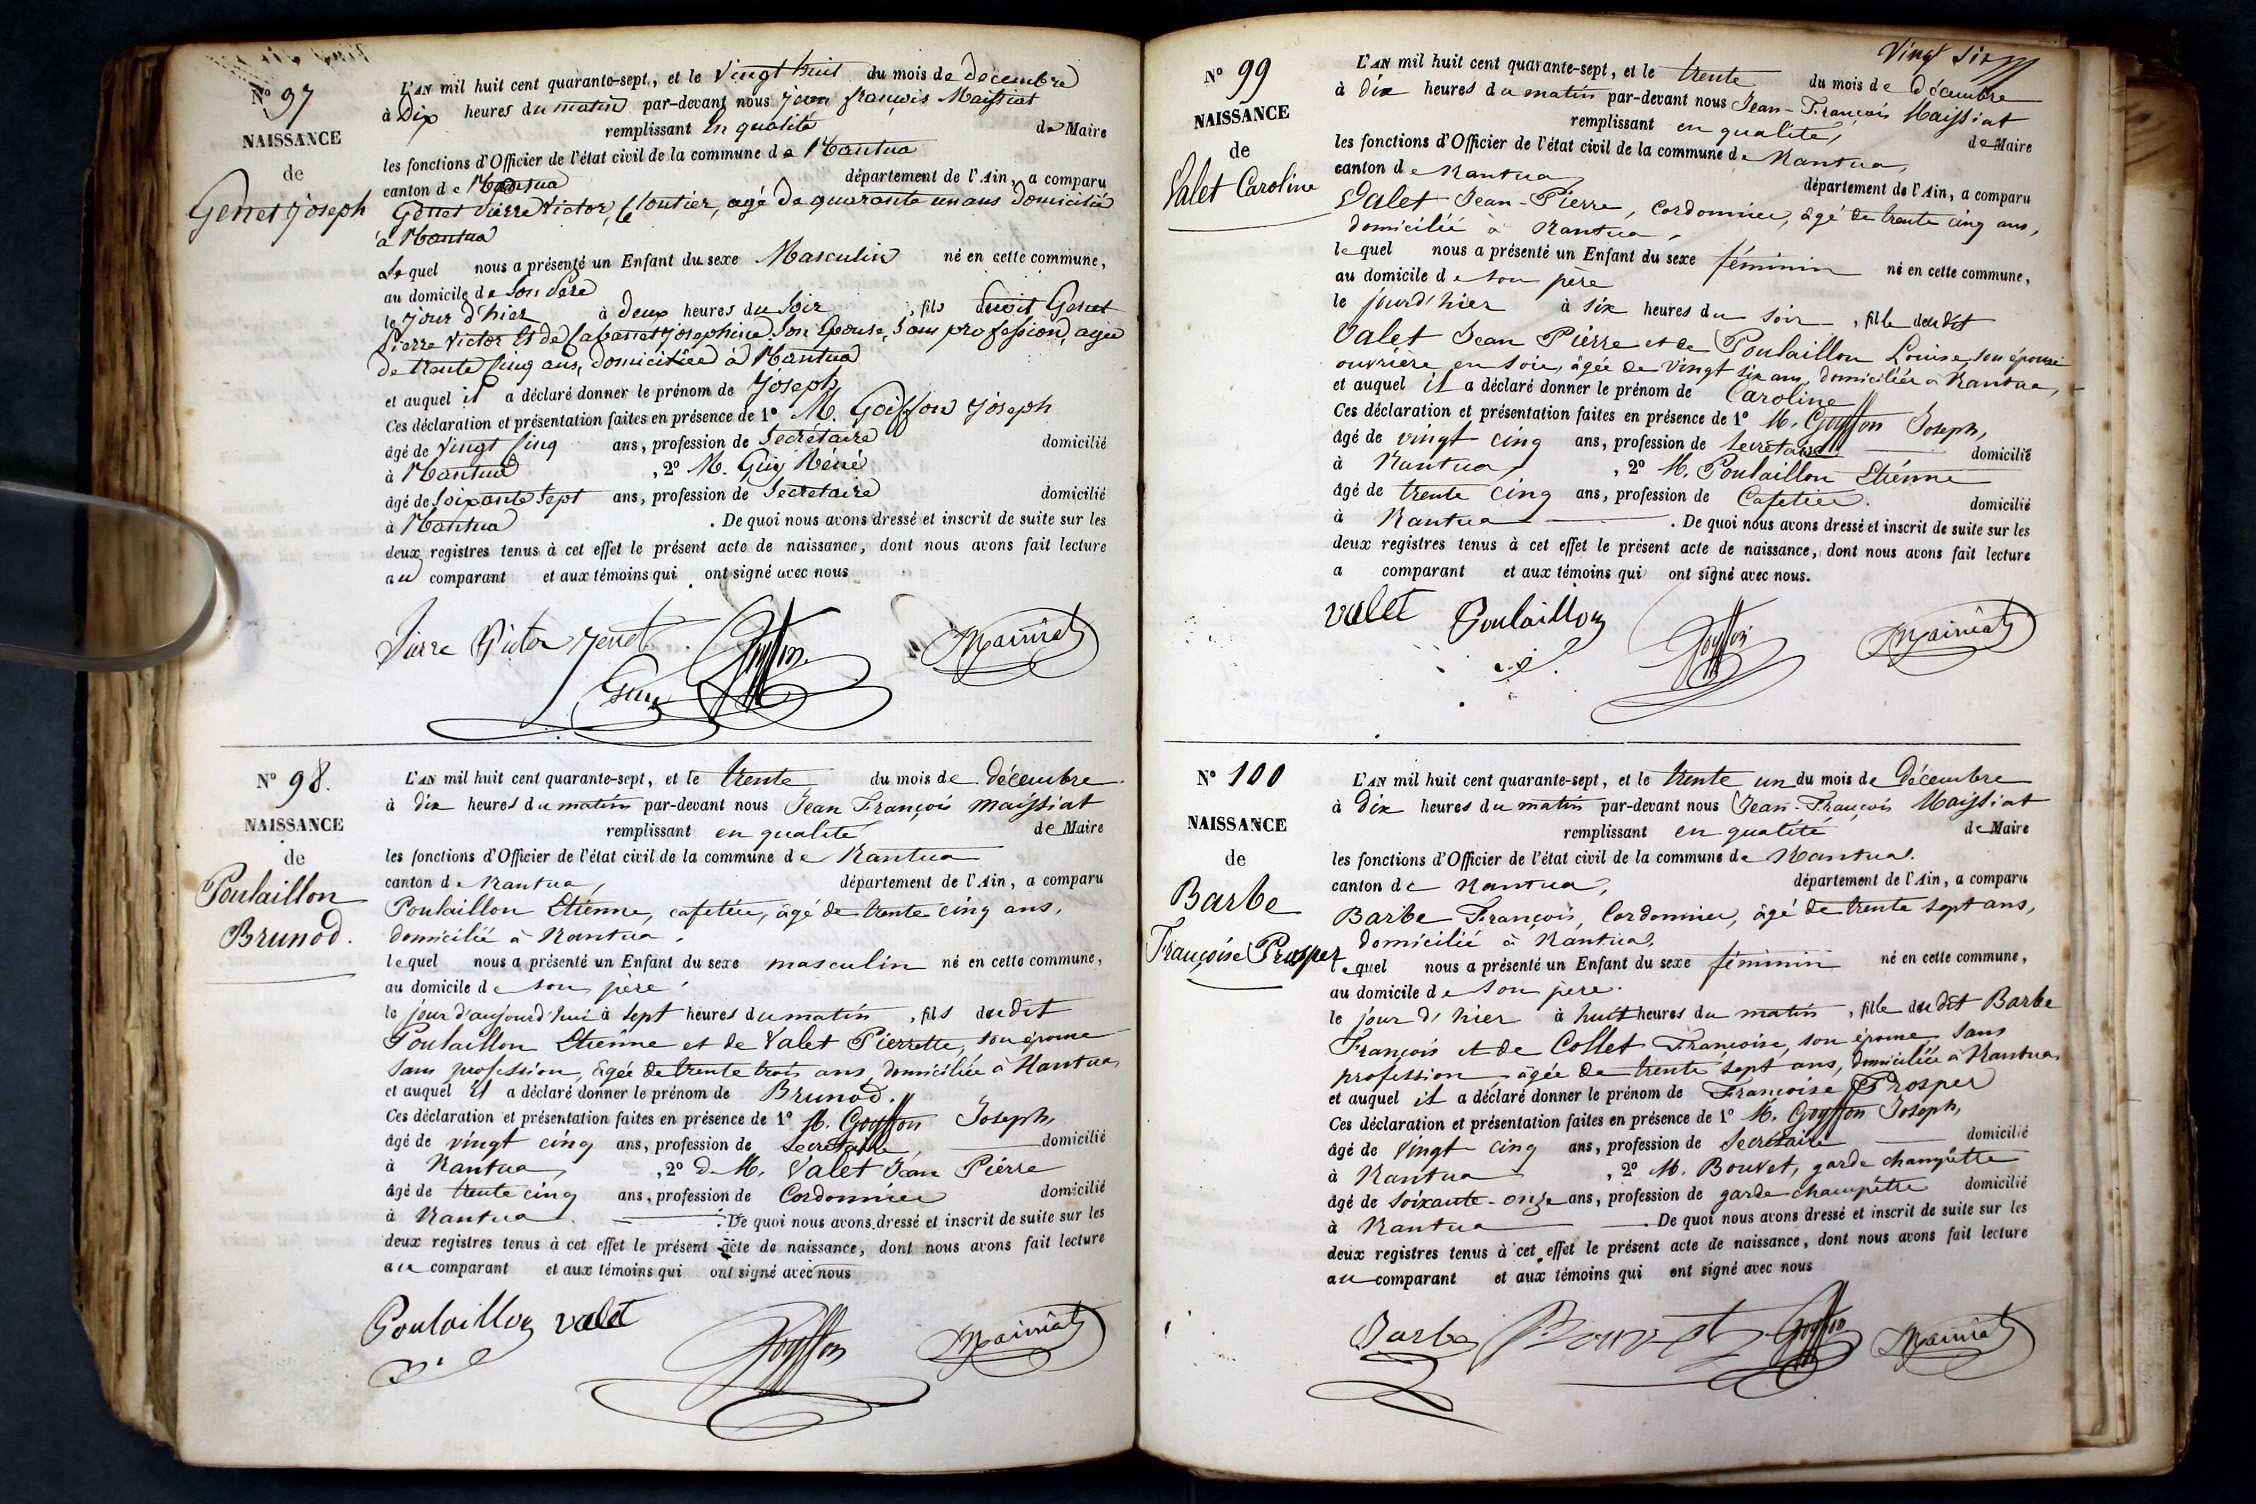 N° 97
NAISSANCE
de
Genet Joseph
L'AN mil huit cent quarante-sept, et le vingt huit du mois de décembre
à Dix heures du matin par-devant nous Jean françois Maissiat
remplissant en qualité de Maire
les fonctions d'Officier de l'état civil de la commune de Nantua
canton de Nantua département de l'Ain, a comparu
Genet Pierre Victor, Cloutier, agé de quarante un ans domicilié
à Nantua
Lequel nous a présenté un Enfant du sexe Masculin né en cette commune,
au domicile de son Père
le jour d'hier à deux heures du soir, fils dudit Genet
Pierre Victor Et de Josephine Son Epouse, Sans profession, agée
de trente Cinq ans, domiciliée à Nantua
et auquel il a déclaré donner le prénom de Joseph
Ces déclaration et présentation faites en présence de 1° M. Goiffon Joseph
âgé de vingt Cinq ans, profession de Secrétaire domicilié
à Nantua, 2° M. Guy Réné
âgé de Soixante Sept ans, profession de Secretaire domicilié
à Nantua. De quoi nous avons dressé et inscrit de suite sur les
deux registres tenus à cet effet le présent acte de naissance, dont nous avons fait lecture
au comparant et aux témoins qui ont signé avec nous
Pierre Victor Genet Goyffon Maissiat
Guy
N° 98.
NAISSANCE
de
Poulaillon
Brunod.
L'AN mil huit cent quarante-sept, et le trente du mois de décembre
à dix heures du matin par-devant nous Jean François Maissiat
remplissant en qualité de Maire
les fonctions d'Officier de l'état civil de la commune de Nantua
canton de Nantua, département de l'Ain, a comparu
Poulaillon Etiénne, cafetier, âgé de trente cinq ans,
domicilié à Nantua,
lequel nous a présenté un Enfant du sexe masculin né en cette commune,
au domicile de son père,
le jour d'aujourd'hui à sept heures du matin, fils dudit
Poulaillon Etiénne et de Valet Pierrette, son épouse
sans profession, âgée de trente trois ans, domiciliée à Nantua
et auquel il a déclaré donner le prénom de Brunod.
Ces déclaration et présentation faites en présence de 1° M. Goyffon Joseph,
âgé de vingt cinq ans, profession de Secrétaire domicilié
à Nantua, 2° de M. Valet Jean Pierre
âgé de trente cinq ans, profession de Cordonnier domicilié
à Nantua. De quoi nous avons dressé et inscrit de suite sur les
deux registres tenus à cet effet le présent acte de naissance, dont nous avons fait lecture
au comparant et aux témoins qui ont signé avec nous
Poulaillon valet Goyffon Maissiat
Vingt six
N° 99
NAISSANCE
de
Valet Caroline
L'AN mil huit cent quarante-sept, et le trente du mois de décembre
à dix heures du matin par-devant nous Jean-François Maissiat
remplissant en qualité, de Maire
les fonctions d'Officier de l'état civil de la commune de Nantua,
canton de Nantua, département de l'Ain, a comparu
Valet Jean-Pierre, Cordonnier, âgé de trente cinq ans,
domicilié à Nantua,
lequel nous a présenté un Enfant du sexe féminin né en cette commune,
au domicile de son père
le jourd'hier à six heures du soir, fille dudit
Valet Jean Pierre et de Poulaillon Louise, son épouse
ouvrière en soie, âgée de vingt six ans, domiciliée à Nantua,
et auquel il a déclaré donner le prénom de Caroline
Ces déclaration et présentation faites en présence de 1° M. Goyffon Joseph,
âgé de vingt cinq ans, profession de Secrétaire domicilié
à Nantua, 2° M. Poulaillon Etiénne
âgé de trente cinq ans, profession de Cafetier. domicilié
à Nantua. De quoi nous avons dressé et inscrit de suite sur les
deux registres tenus à cet effet le présent acte de naissance, dont nous avons fait lecture
a comparant et aux témoins qui ont signé avec nous.
valet Poulaillon Goyffon Maissiat
N° 100
NAISSANCE
de
Barbe
Françoise Prosper
L'AN mil huit cent quarante-sept, et le trente un du mois de Décembre
à dix heures du matin par-devant nous Jean-François Maissiat
remplissant en qualité de Maire
les fonctions d'Officier de l'état civil de la commune de Nantua.
canton de Nantua, département de l'Ain, a comparu
Barbe François, Cordonnier, âgé de trente sept ans,
domicilié à Nantua,
lequel nous a présenté un Enfant du sexe féminin né en cette commune,
au domicile de son père.
le jour d'hier à huit heures du matin, fille dudit Barbe
François et de Collet Françoise, son épouse, sans
profession âgée de trente sept ans, domiciliée à Nantua
et auquel il a déclaré donner le prénom de Françoise Prosper
Ces déclaration et présentation faites en présence de 1° M. Goyffon Joseph,
âgé de vingt cinq ans, profession de Secrétaire domicilié
à Nantua, 2° M. Bouvet, garde champêtre
âgé de soixante-onze ans, profession de garde champêtre domicilié
à Nantua. De quoi nous avons dressé et inscrit de suite sur les
deux registres tenus à cet effet le présent acte de naissance, dont nous avons fait lecture
au comparant et aux témoins qui ont signé avec nous
Barbe Bouvet Goyffon Maissiat